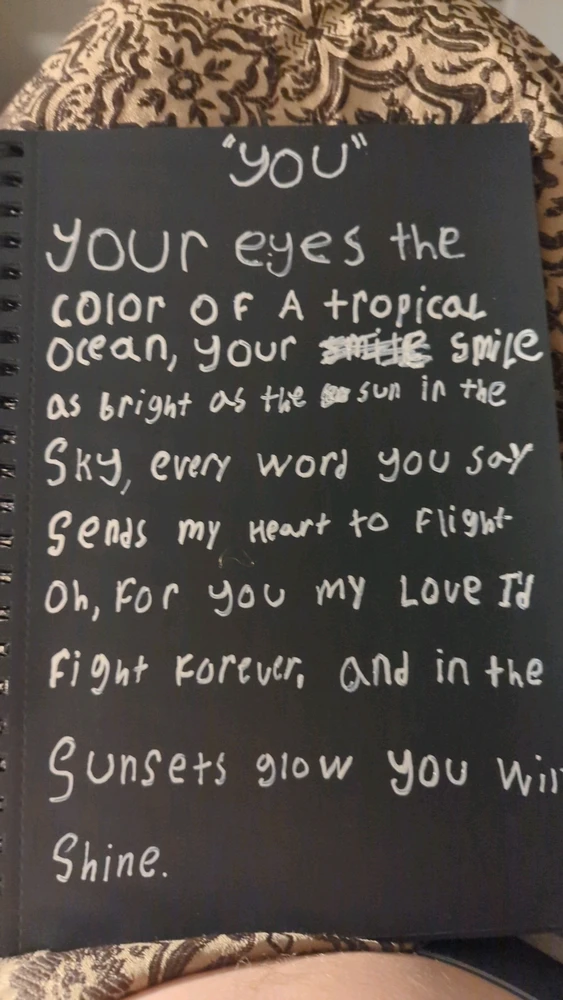 "YOU"
your eyes the
color of A tropical
ocean, your smile smile
as bright as the sun in the
Sky, every word you say
Sends my Heart to Flight
Oh, For you my Love I'd
Fight Forever, and in the
Sunsets glow you will
Shine.